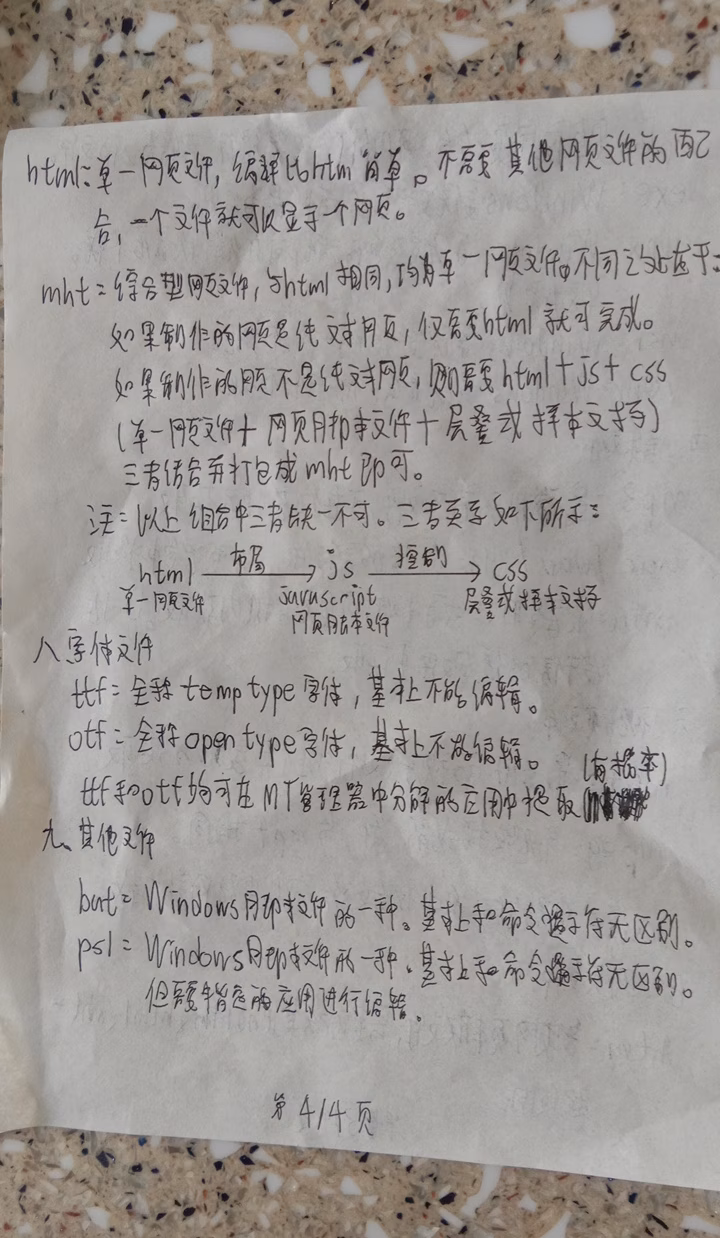 html：单一网页文件，编辑比htm简单。不需要其他网页文件的配
合，一个文件就可以显示一个网页。
mht：综合型网页文件，与html相同，均为单一网页文件。不同之处在于：
如果制作的网页是纯文本网页，仅需要html就可完成。
如果制作的网页不是纯文本网页，则需要html+js+css
（单一网页文件+网页脚本文件+层叠或样本文档）
三者结合并打包成mht即可。
注：以上组合中三者缺一不可。三者关系如下所示：
html 布局 js 控制 css
单一网页文件 javascript 层叠或样本文档
网页脚本文件
八、字体文件
ttf：全称temp type字体，基本上不能编辑。
otf：全称open type字体，基本上不能编辑。
ttf和otf均可在MT管理器中分解的应用中提取（有概率）
九、其他文件
bat：Windows脚本文件的一种。基本上和命令提示符无区别。
ps1：Windows脚本文件的一种。基本上和命令提示符无区别。
但需要指定的应用进行编辑。
第4/4页